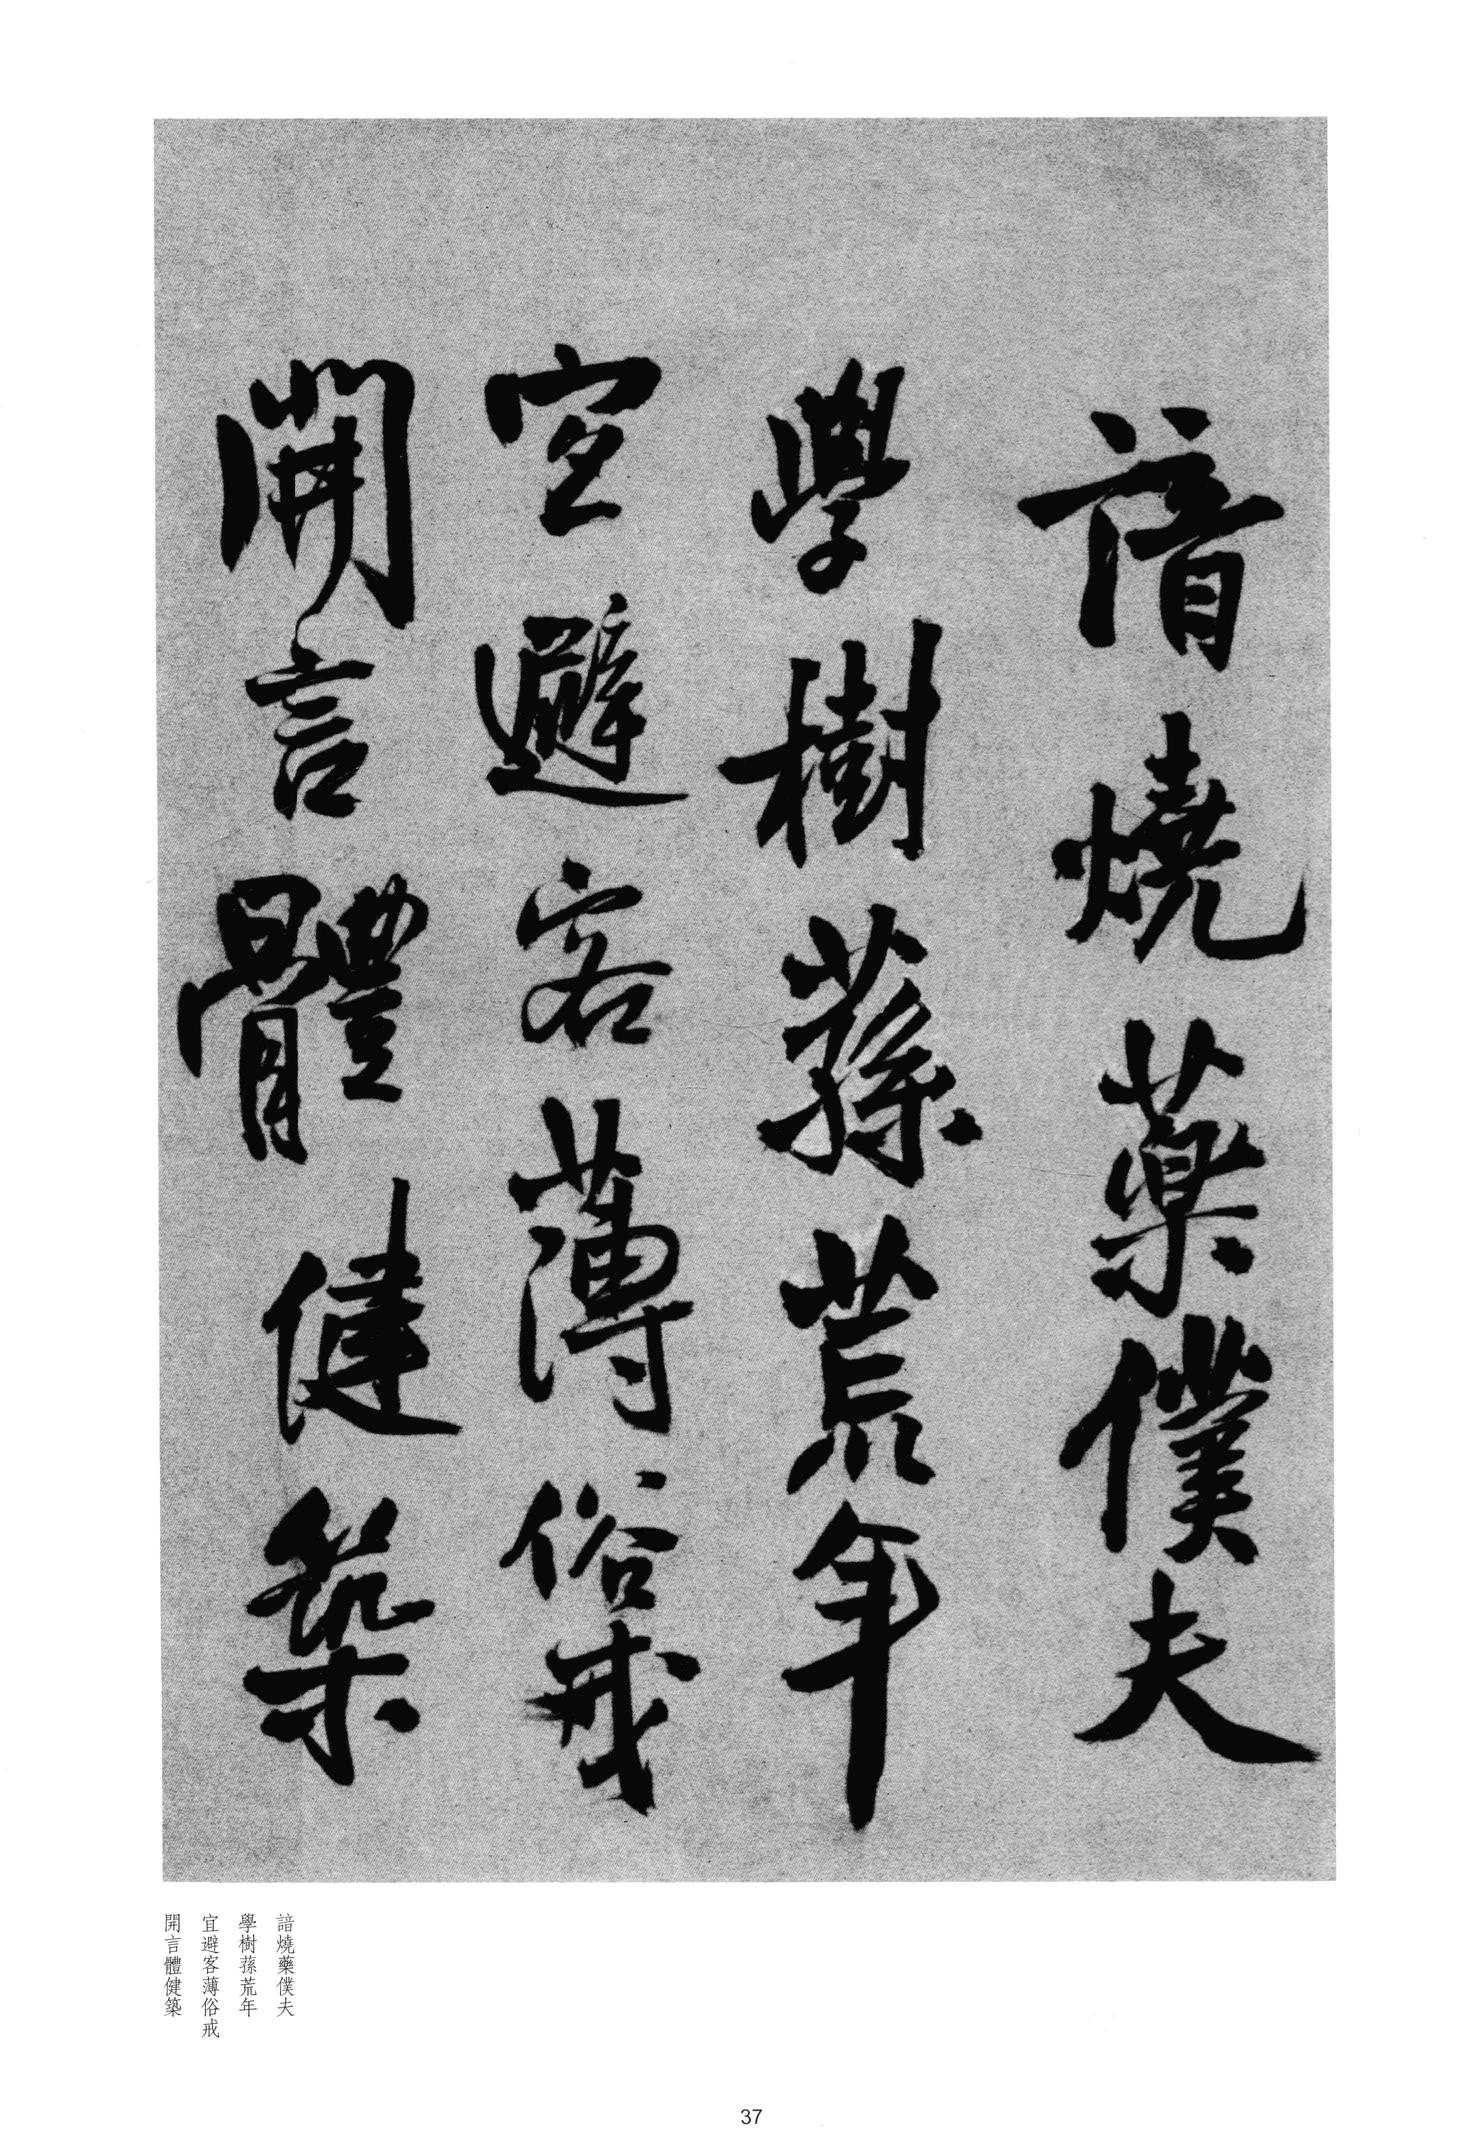 諳燒藥僕夫
學樹蓀荒年
宜避客薄俗戒
開言體健築
諳燒藥僕夫
學樹蓀荒年
宜避客薄俗戒
開言體健築
37